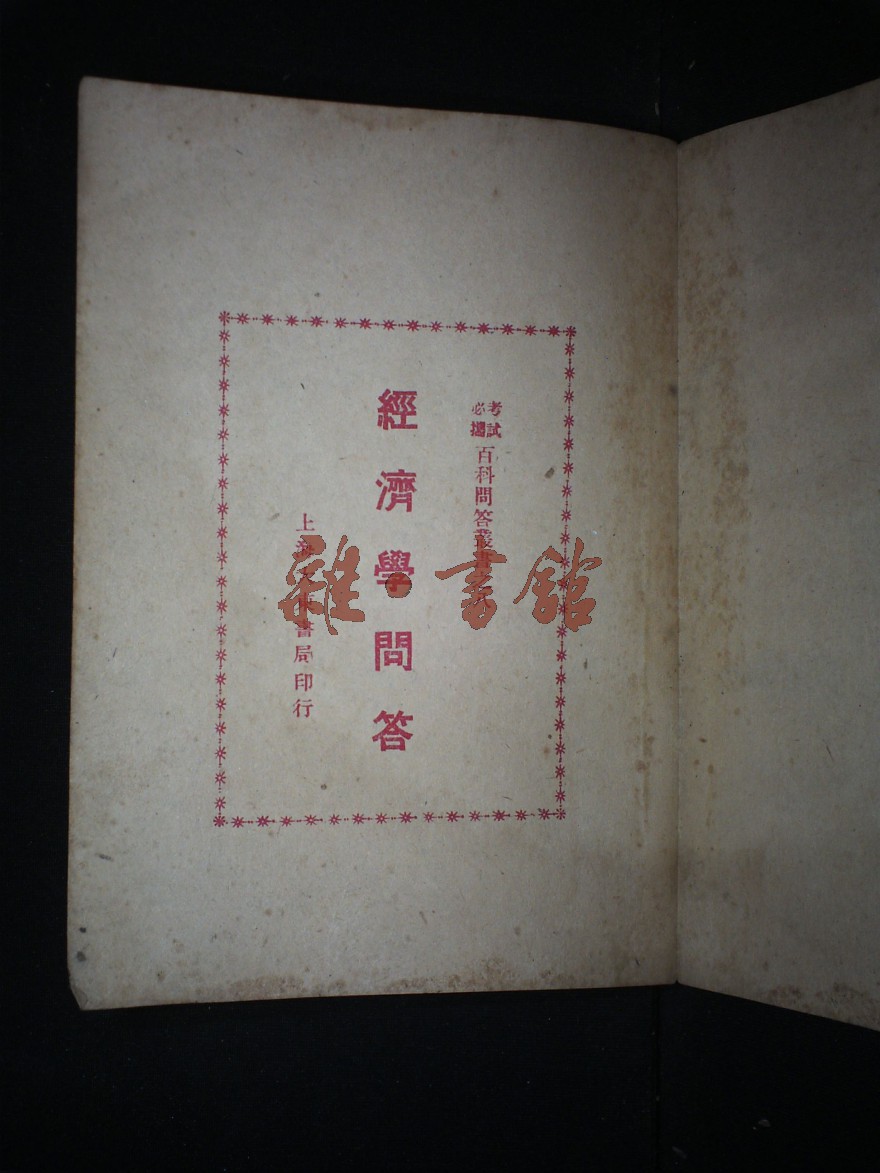 考試
必攜
百科問答叢書之
經濟學問答
上海 書局印行
雜·書館